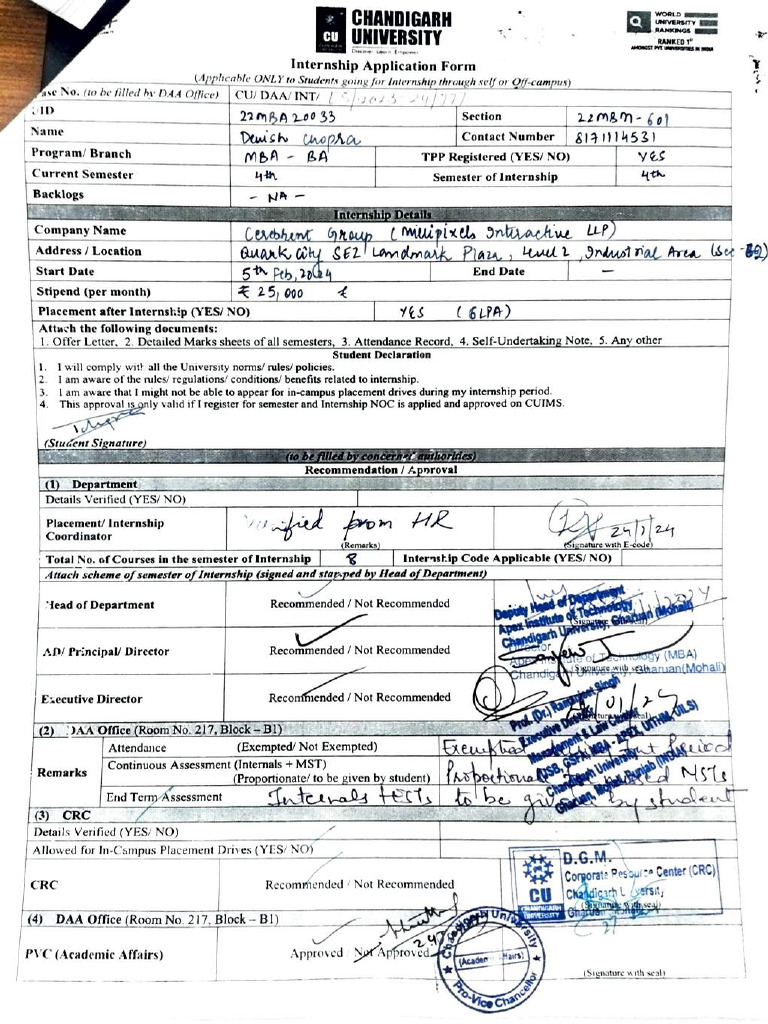 CU
CHANDIGARH
UNIVERSITY
Discover. Learn. Empower.
WORLD
UNIVERSITY
RANKINGS
RANKED 1st
AMONGST PVT UNIVERSITIES IN INDIA
Internship Application Form
(Applicable ONLY to Students going for Internship through self or Off-campus)
ase No. (to be filled by DAA Office) CU/ DAA/ INT/
UID 22MBA20033 Section 22MBM-601
Name Denish Chopra Contact Number 8171114531
Program/ Branch MBA - BA TPP Registered (YES/ NO) YES
Current Semester 4th Semester of Internship 4th
Backlogs - NA -
Internship Details
Company Name Cerebrent Group (Millipixels Interactive LLP)
Address / Location Quark City SEZ Landmark Plaza, Level 2, Industrial Area (Sec
Start Date 5th Feb, 2024 End Date -
Stipend (per month) ₹ 25,000
Placement after Internship (YES/ NO) YES (6LPA)
Attach the following documents:
1. Offer Letter, 2. Detailed Marks sheets of all semesters, 3. Attendance Record, 4. Self-Undertaking Note, 5. Any other
Student Declaration
1. I will comply with all the University norms/ rules/ policies.
2. I am aware of the rules/ regulations/ conditions/ benefits related to internship.
3. I am aware that I might not be able to appear for in-campus placement drives during my internship period.
4. This approval is only valid if I register for semester and Internship NOC is applied and approved on CUIMS.
(Student Signature)
(to be filled by concerned authorities)
Recommendation / Approval
(1) Department
Details Verified (YES/ NO)
Placement/ Internship
Coordinator
Verified from HR
(Remarks)
24/1/24
(Signature with E-code)
Total No. of Courses in the semester of Internship 8 Internship Code Applicable (YES/ NO)
Attach scheme of semester of Internship (signed and stamped by Head of Department)
Head of Department Recommended / Not Recommended
Deputy Head of Department
Apex Institute of Technology
Chandigarh University, Gharuan (Mohali)
AD/ Principal/ Director Recommended / Not Recommended
Director
Apex Institute of Technology (MBA)
Chandigarh University, Gharuan(Mohali)
Executive Director Recommended / Not Recommended
Prof. (Dr.) Singh
Executive Director
Chandigarh University
(2) DAA Office (Room No. 217, Block – B1)
Remarks
Attendance (Exempted/ Not Exempted) Exempted
Continuous Assessment (Internals + MST)
(Proportionate/ to be given by student) MSTs
End Term Assessment Internals tests to be given by student
(3) CRC
Details Verified (YES/ NO)
Allowed for In-Campus Placement Drives (YES/ NO)
CRC Recommended / Not Recommended
CU
CHANDIGARH
UNIVERSITY
D.G.M.
Corporate Resource Center (CRC)
Chandigarh University
Gharuan Mohali
(Signature with seal)
(4) DAA Office (Room No. 217, Block – B1)
PVC (Academic Affairs) Approved / Not Approved
Chandigarh University
(Academic Affairs)
Pro-Vice Chancellor
(Signature with seal)